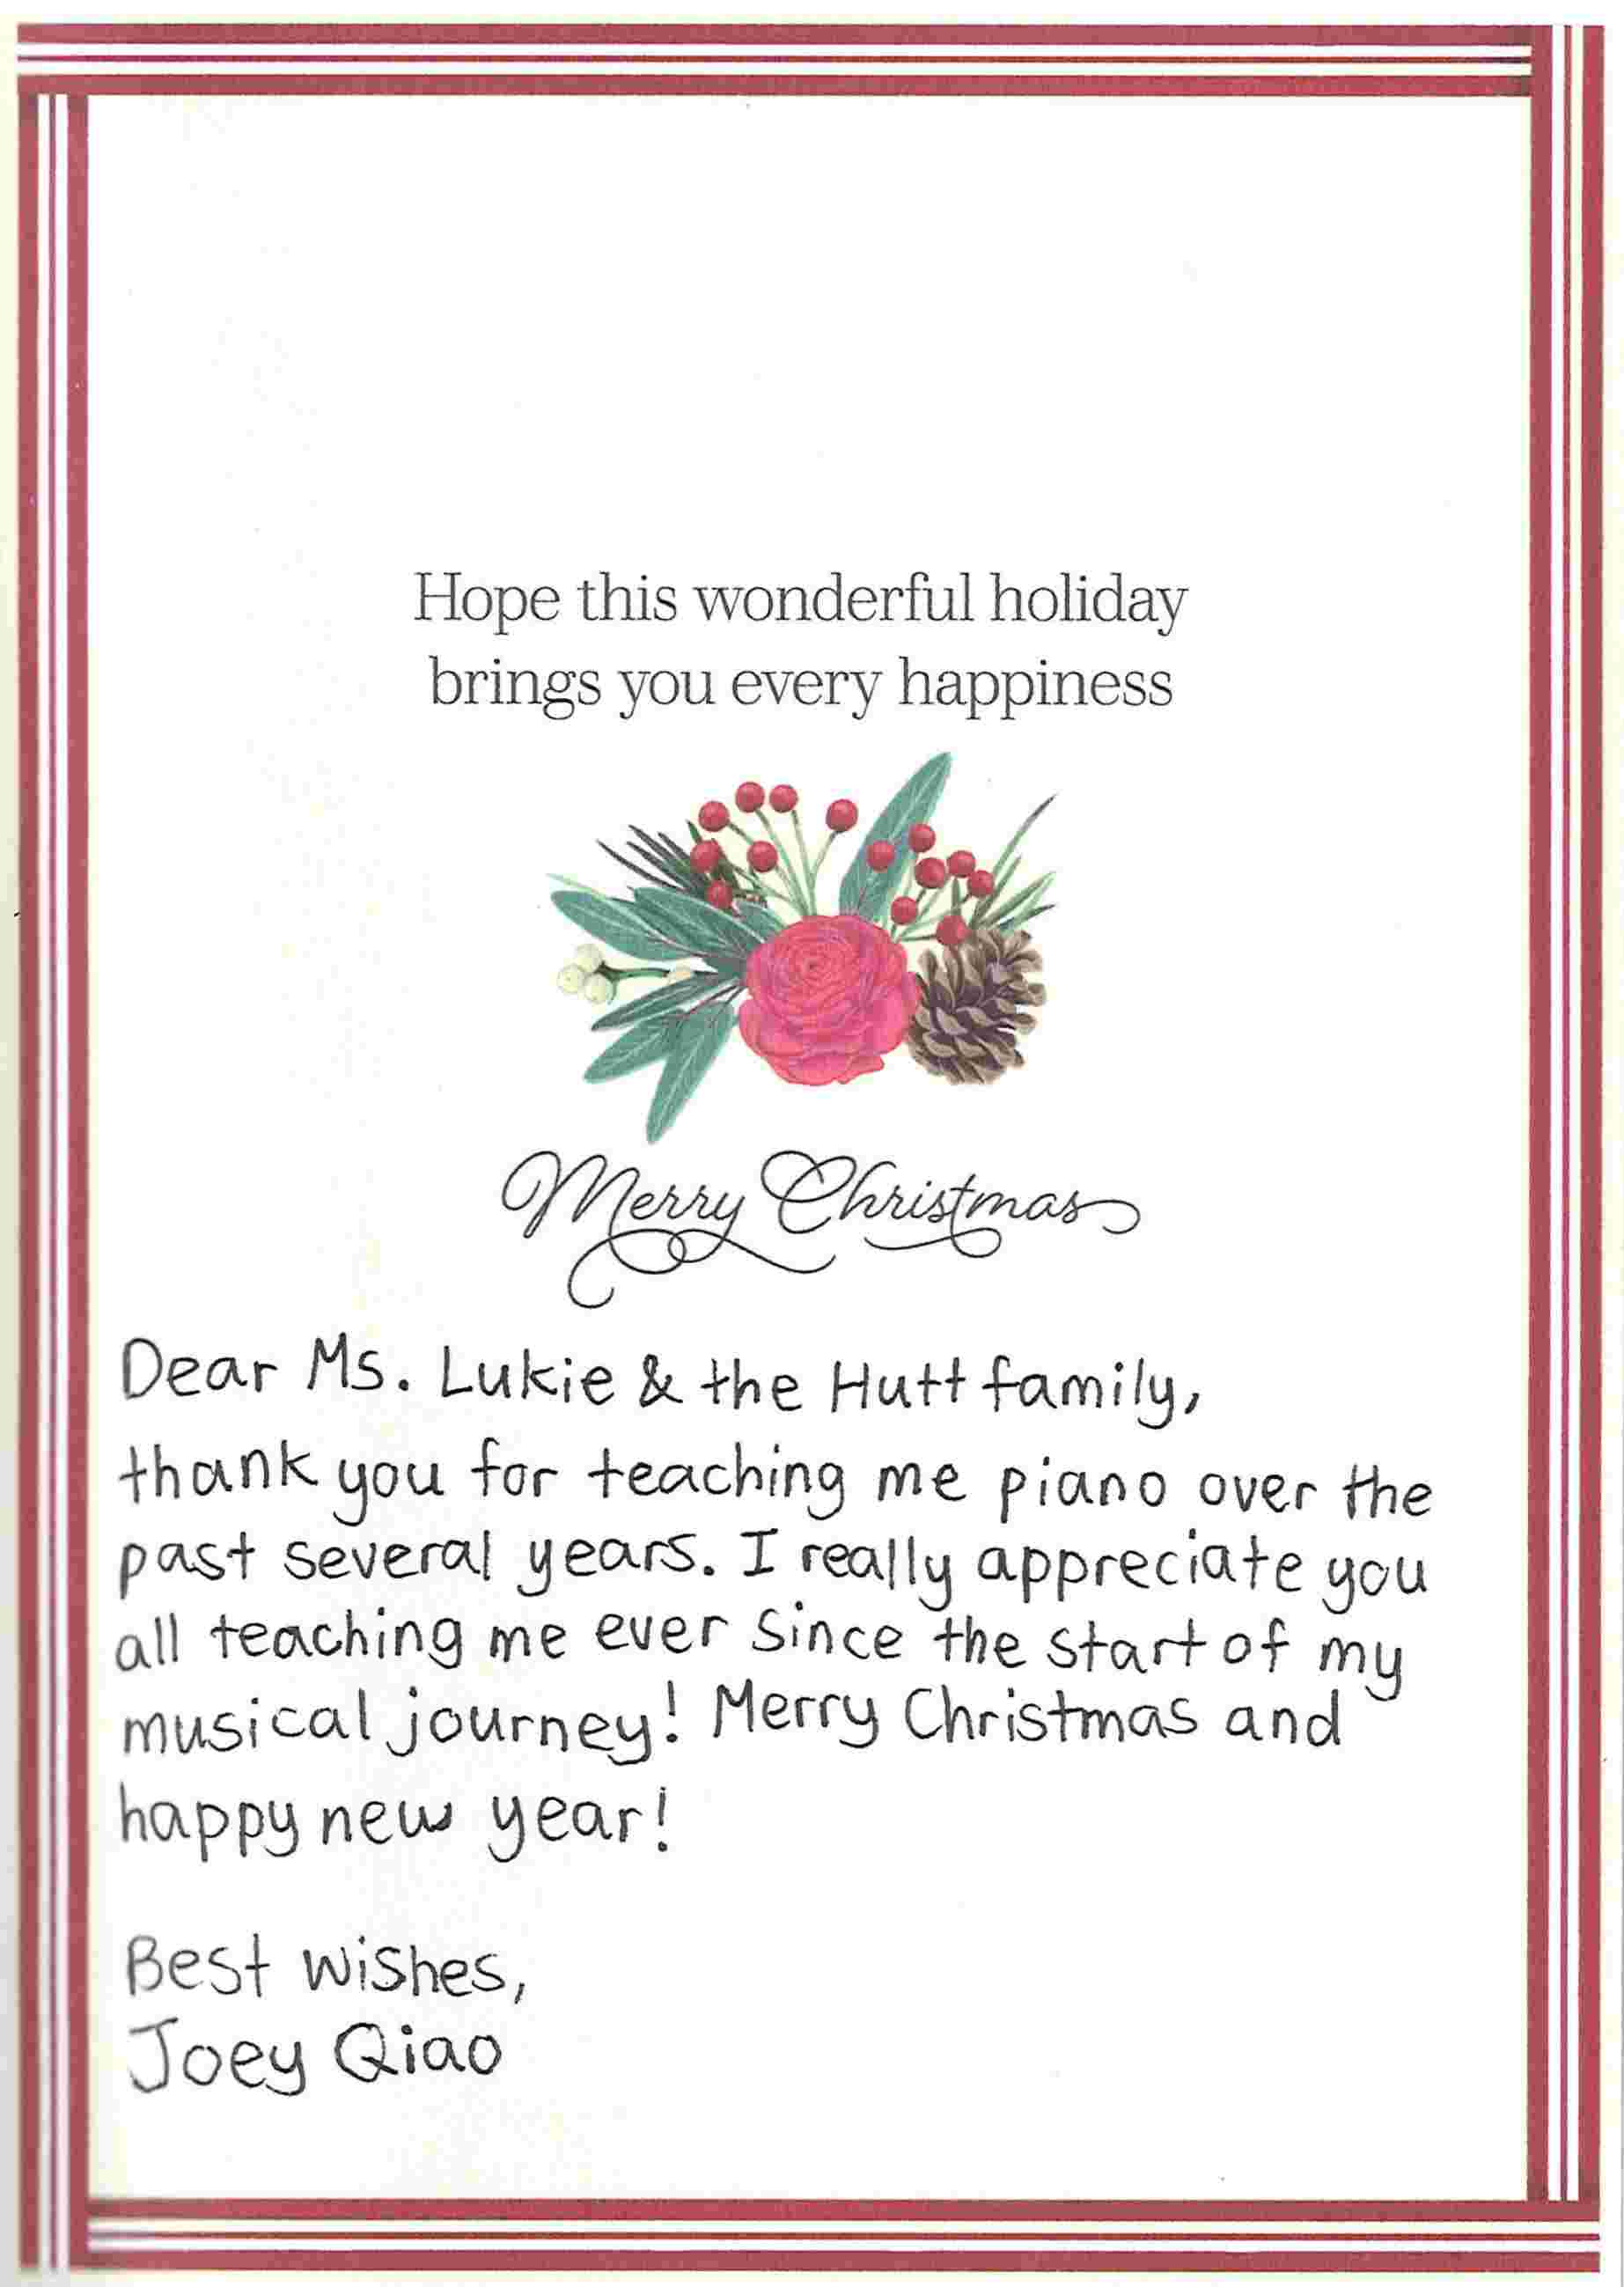 Hope this wonderful holiday
brings you every happiness
Merry Christmas
Dear Ms. Lukie & the Hutt family,
thank you for teaching me piano over the
past several years. I really appreciate you
all teaching me ever since the start of my
musical journey! Merry Christmas and
happy new year!
Best wishes,
Joey Qiao